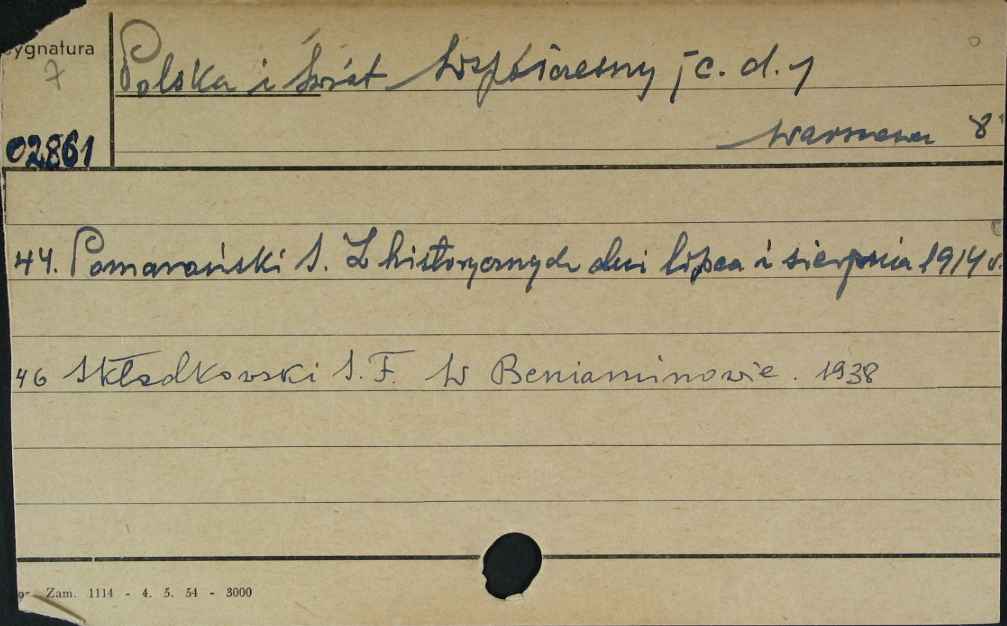 Sygnatura
7
02861
Polska i Świat Współczesny /c. d./
Warszawa 8°
44. Pomarański S. Z historycznych dni lipca i sierpnia 1914 r.
46 Składkowski S. F. W Beniaminowie. 1938
Zam. 1114 - 4. 5. 54 - 3000